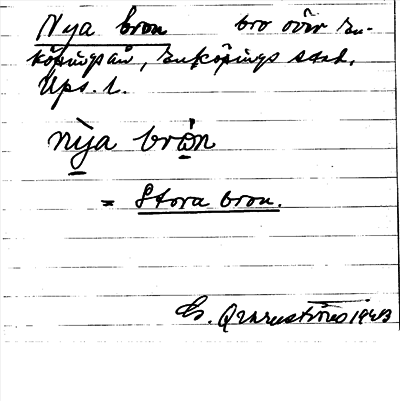 Nya bron bro över En-
köpingsån, Enköpings stad.
Ups. l.
nỳa brὼ̣n
= Stora bron.
G. Qvarnström 1943